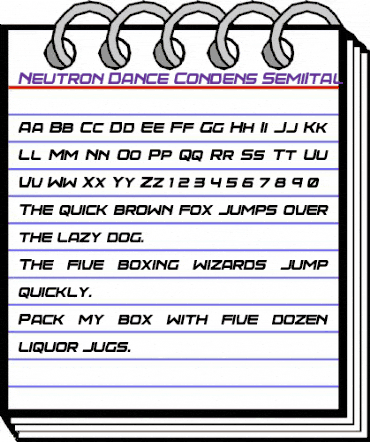 Neutron Dance Condens Semiital
Aa Bb Cc Dd Ee Ff Gg Hh Ii Jj Kk
Ll Mm Nn Oo Pp Qq Rr Ss Tt Uu
Vv Ww Xx Yy Zz 1 2 3 4 5 6 7 8 9 0
The quick brown fox jumps over
the lazy dog.
The five boxing wizards jump
quickly.
Pack my box with five dozen
liquor jugs.